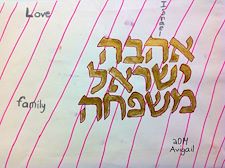 Love
Israel
אהבה
ישראל
משפחה
family
2014
Avigail